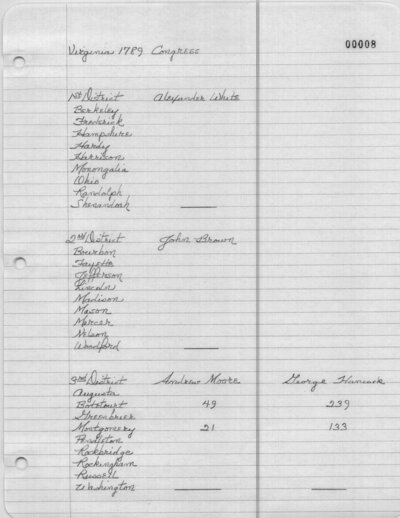 Virginia 1789 Congress
00008
1st District Alexander White
Berkeley
Frederick
Hampshire
Hardy
Harrison
Monongalia
Ohio
Randolph
Shenandoah
2nd District John Brown
Bourbon
Fayette
Jefferson
Lincoln
Madison
Mason
Mercer
Nelson
Woodford
3rd District Andrew Moore George Hancock
Augusta
Botetourt 49 239
Greenbrier
Montgomery 21 133
Pendleton
Rockbridge
Rockingham
Russell
Washington